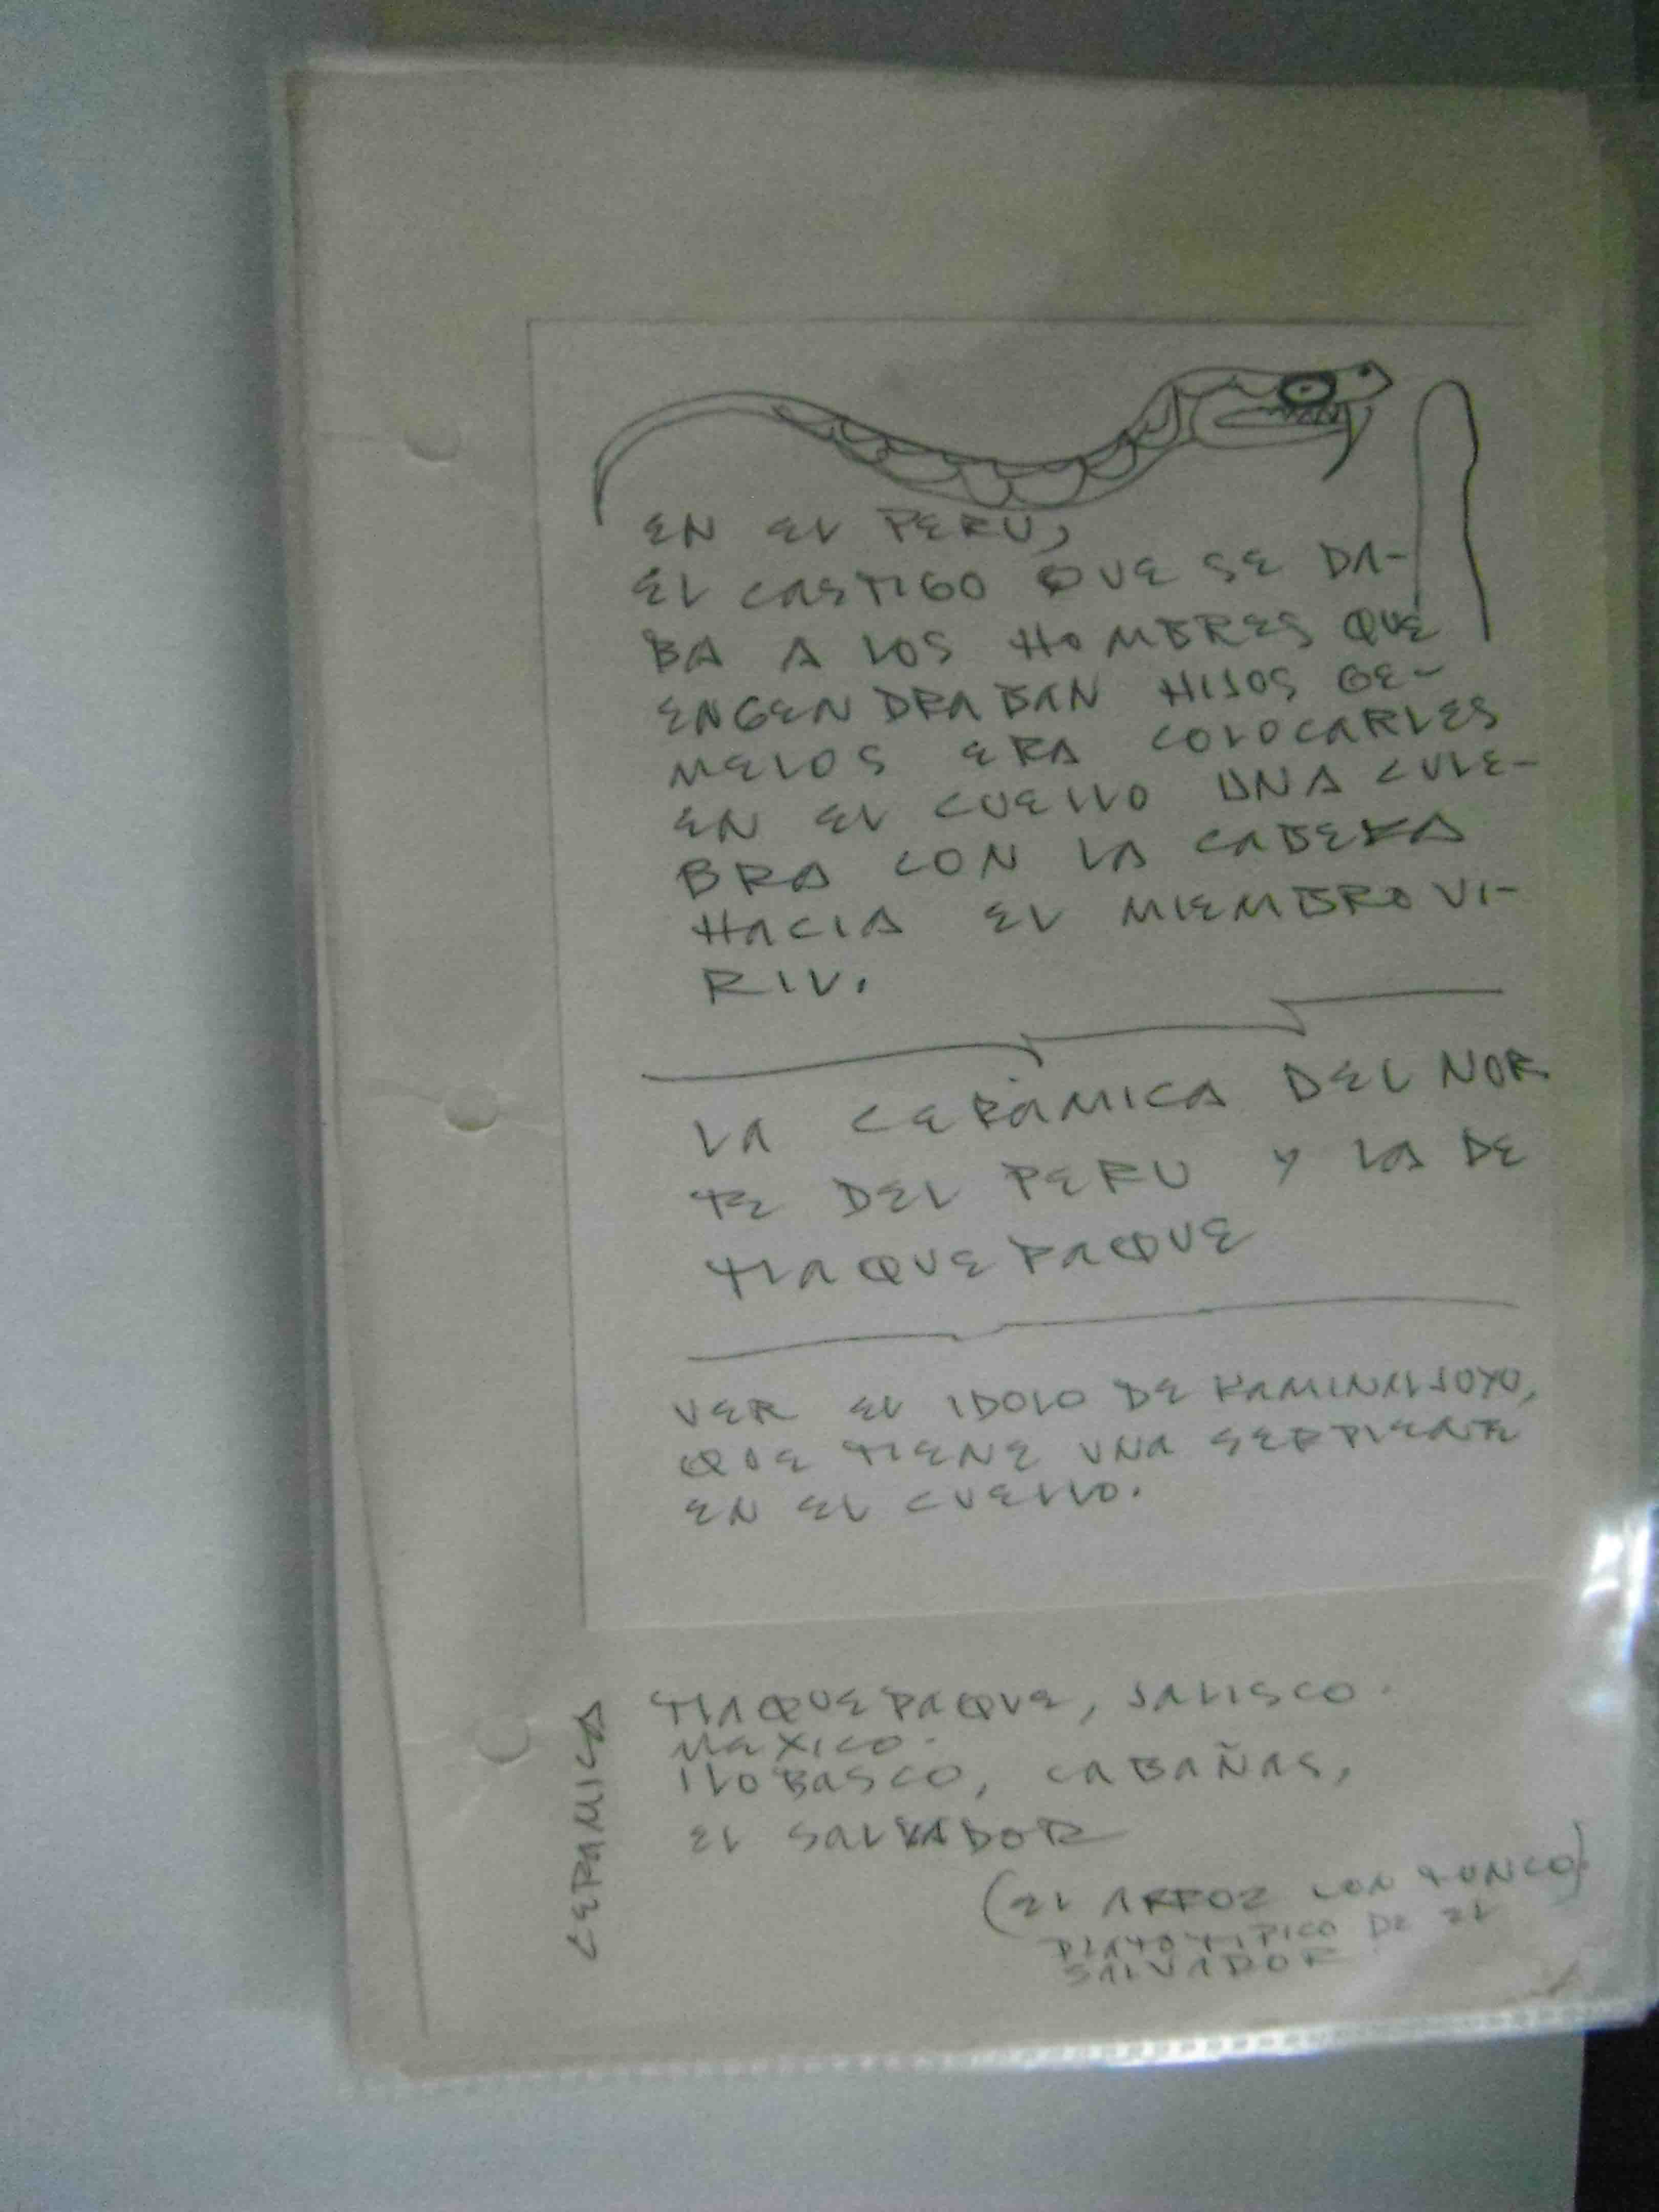 EN EL PERU,
EL CASTIGO QUE SE DA-
BA A LOS HOMBRES QUE
ENGENDRABAN HIJOS GE-
MELOS ERA COLOCARLES
EN EL CUELLO UNA CULE-
BRA CON LA CABEZA
HACIA EL MIEMBRO VI-
RIL.
LA CERAMICA DEL NOR
TE DEL PERU Y LA DE
TLAQUEPAQUE
VER EL IDOLO DE KAMINALJOYO,
QUE TIENE UNA SERPIENTE
EN EL CUELLO.
CERAMICA
TLAQUEPAQUE, JALISCO.
MEXICO.
ILOBASCO, CABAÑAS,
EL SALVADOR
(EL ARROZ CON TUNCO)
PLATO TIPICO DE EL
SALVADOR